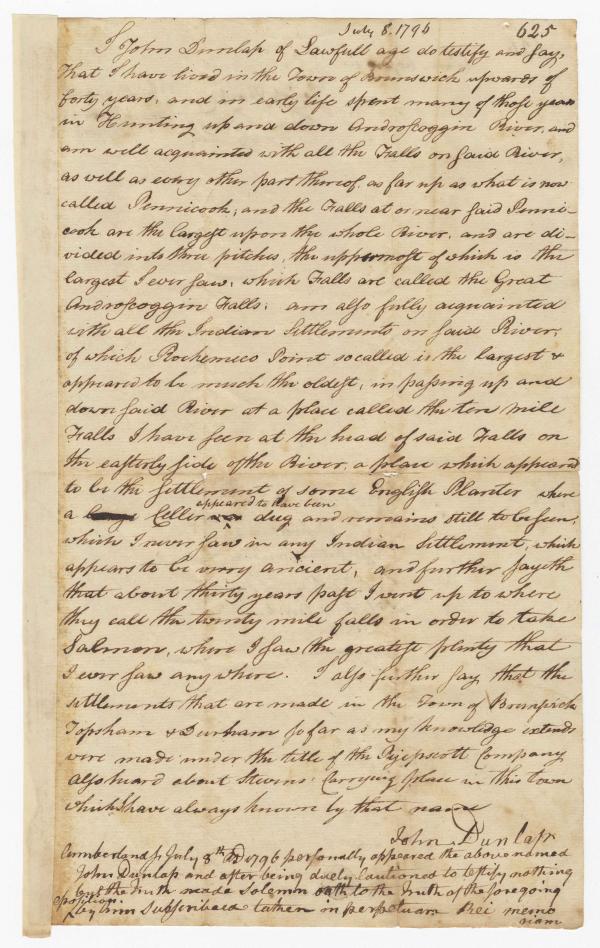 July 8. 1796
625
I John Dunlap of Lawfull age do testify and say,
That I have lived in the Town of Brunswick upwards of
forty years, and in early life spent many of those years
in Hunting up and down Androscoggin River, and
am well acquainted with all the Falls on said River,
as well as every other part thereof, as far up as what is now
called Pennicook; and the Falls at or near said Penni-
cook are the largest upon the whole River, and are di-
vided into three pitches, the uppermost of which is the
largest I ever saw, which Falls are called the Great
Androscoggin Falls. am also fully acquainted
with all the Indian Settlements on said River,
of which Rockemeco Point so called is the largest &
appeared to be much the oldest, in passing up and
down said River at a place called the ten mile
Falls I have seen at the head of said Falls on
the easterly side of the River, a place which appeared
to be the settlement of some English Planter where
appeared to have been
a Celler dug and remains still to be seen,
which I never saw in any Indian Settlement, which
appears to be very ancient, and further sayeth
that about thirty years past I went up to where
they call the twenty mile falls in order to take
Salmon, where I saw the greatest plenty that
I ever saw any where. I also further say that the
settlements that are made in the Town of Brunswick
Topsham & Durham so far as my knowledge extends
were made under the title of the Pejepscott Company
Also heard about Stevens Carrying place in this town
which I have always known by that name
John Dunlap
Cumberland ss July 8th AD 1796 personally appeared the above named
John Dunlap and after being duely Cautioned to testify nothing
but the truth made solemn oath to the truth of the foregoing
eposition
by him Subscribed taken in perpetuam Rei memo
riam